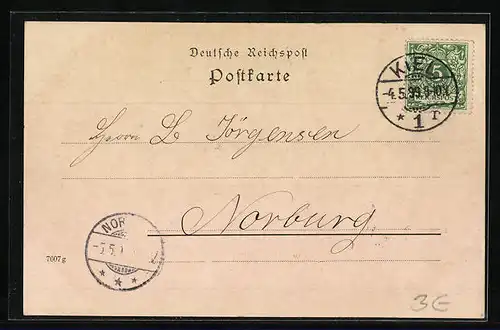 Deutsche Reichspost
Postkarte
5
KIEL
-4.5.99.9-10V.
* 1 r
Herrn L Jörgensen
Norburg.
NOR
-5.5.
* * *
7007 g
3E